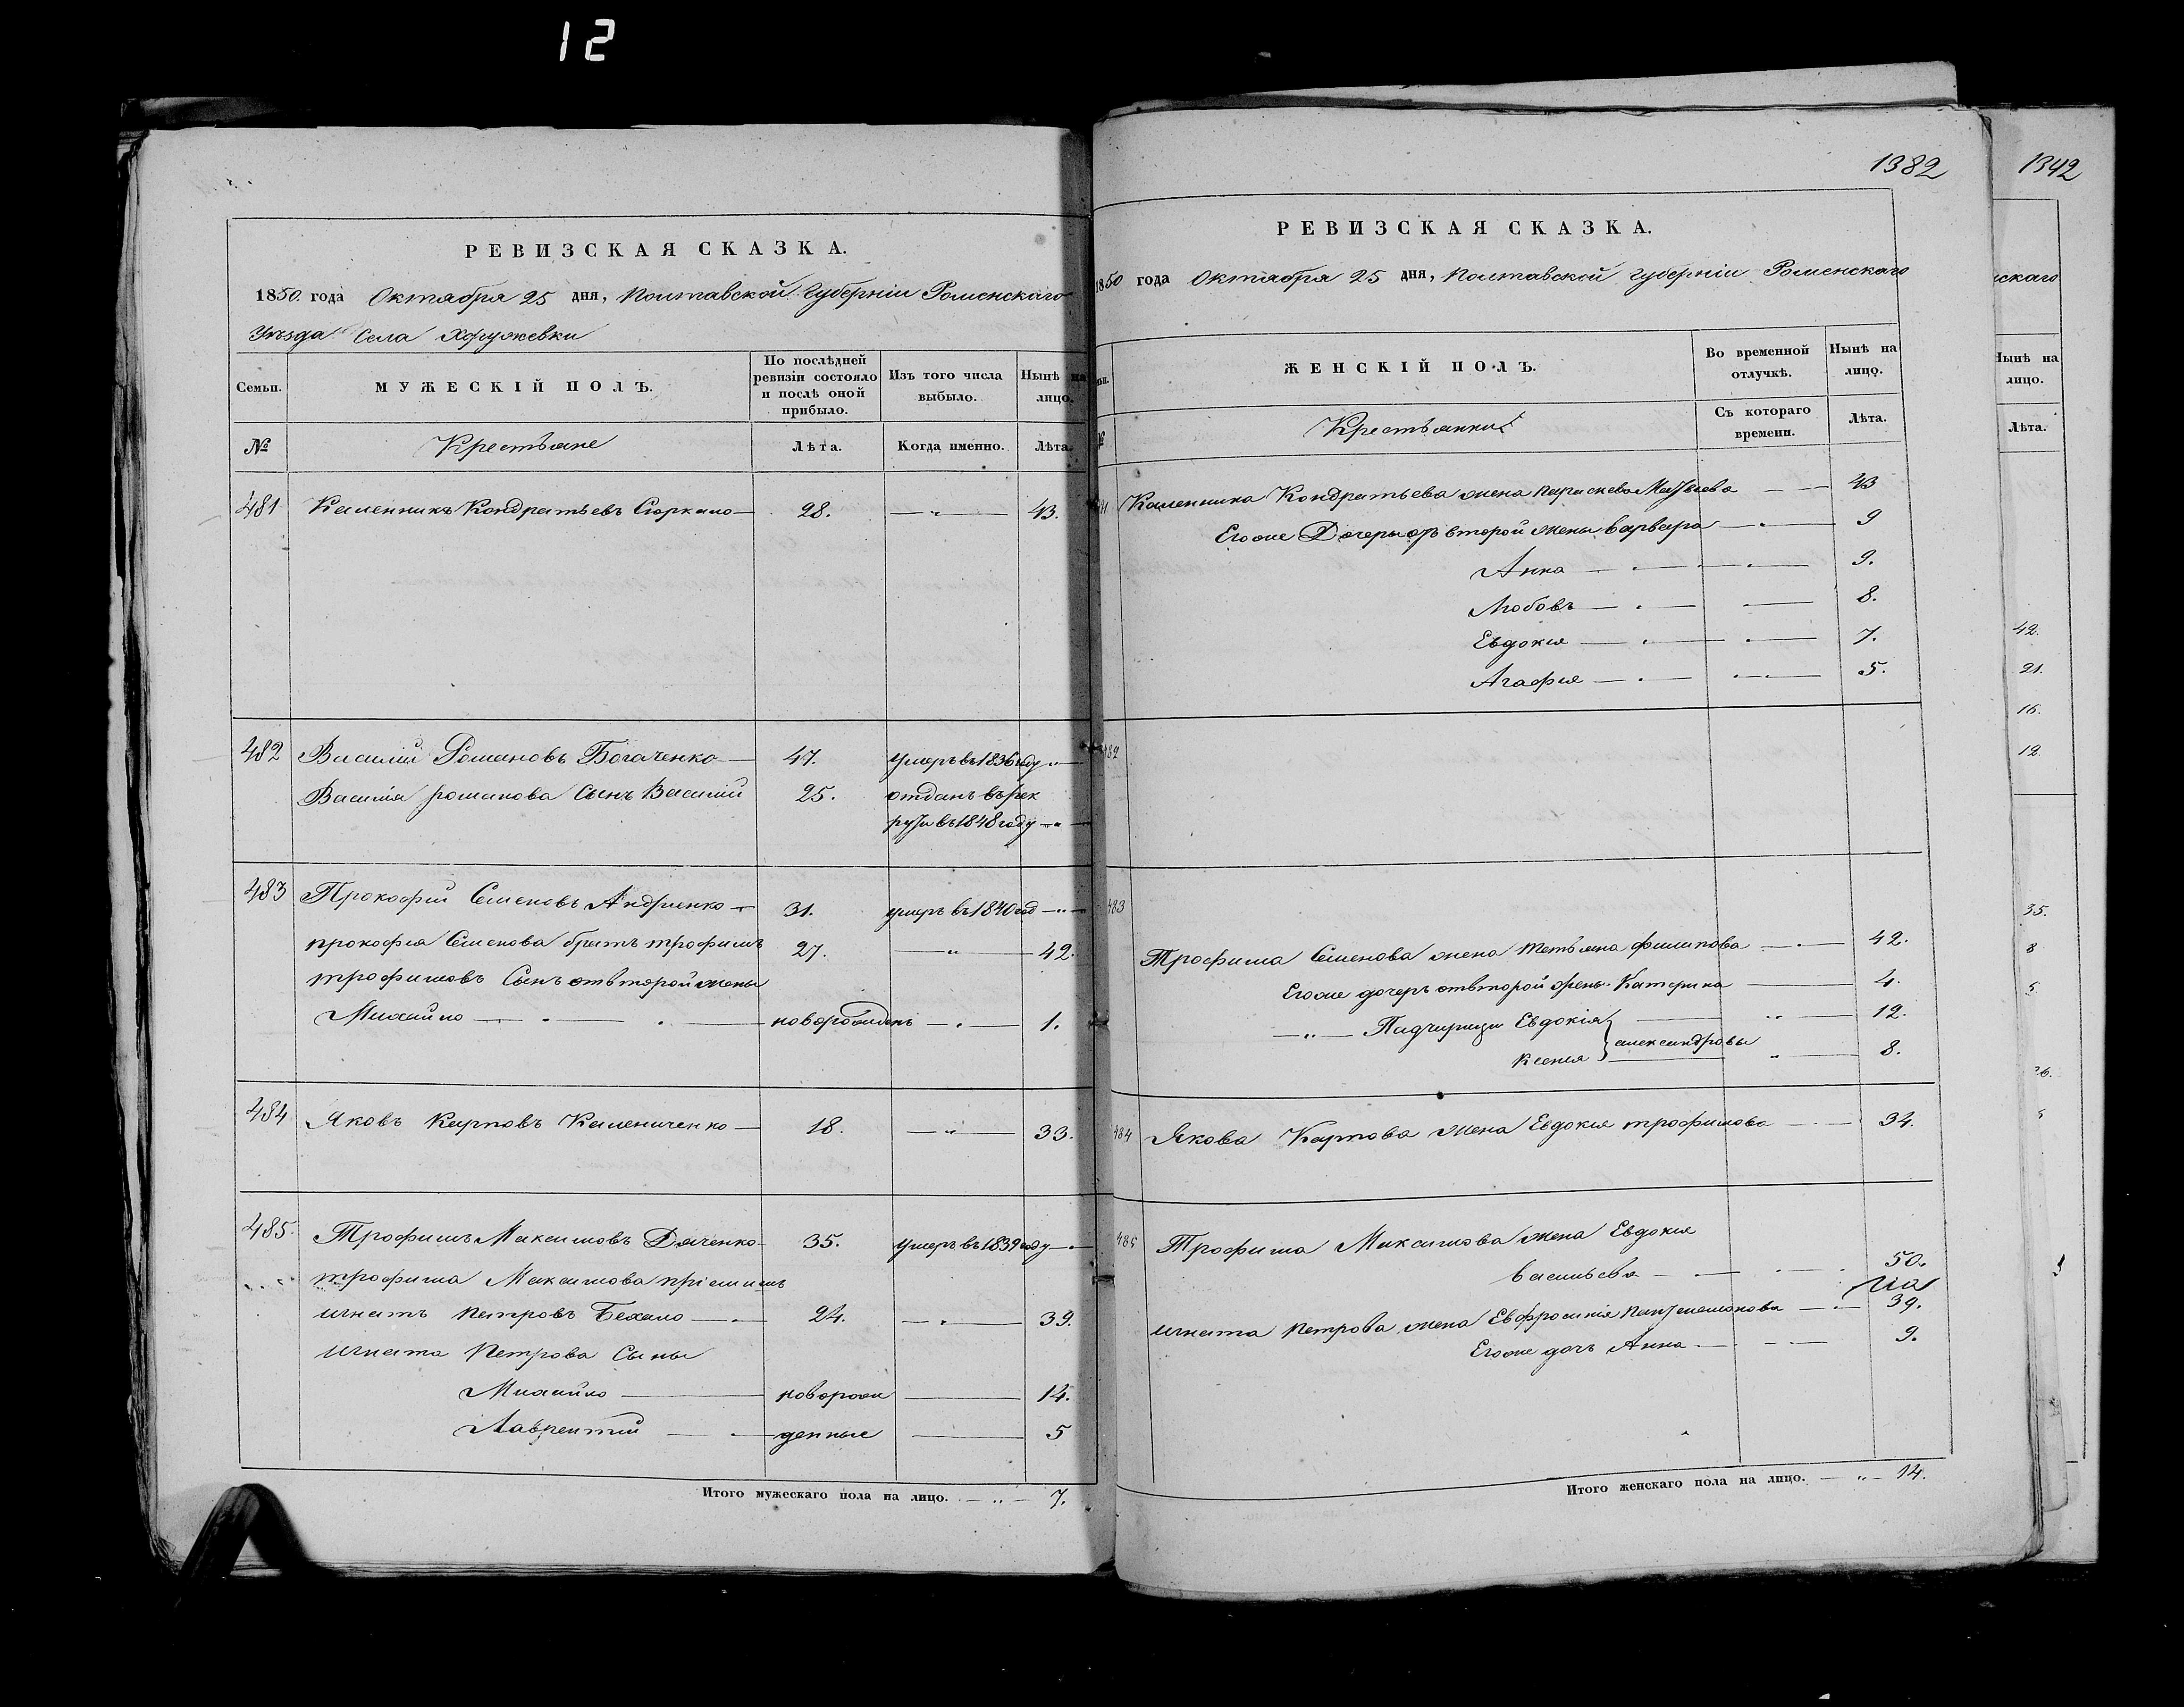 12
РЕВИЗСКАЯ СКАЗКА.
1850 года Октября 25 дня, Полтавской Губерніи Роменскаго
Уѣзда Села Хоружевки
Семьи.
МУЖЕСКІЙ ПОЛЪ.
По послѣдней ревизіи состояло и послѣ оной прибыло.
Изъ того числа выбыло.
Нынѣ на лицо.
№
Крестьяне
Лѣта.
Когда именно.
Лѣта.
481 Каленникъ Кондратьевъ Сюркало — 28. — „ — 43.
482 Василій Романовъ Богаченко — 47. умеръ въ 1836 году „ —
Василія романова Сынъ Василій 25. отданъ въ рек
руты въ 1848 году — „ —
483 Прокофій Семеновъ Андріенко — 31. умеръ въ 1840 год — „ —
прокофія Семенова братъ трофимъ 27. — „ — 42.
трофимовъ Сынъ отвторой жены
Михайло — „ — „ — новорожденъ — „ — 1.
484 Яковъ Карповъ Калениченко — 18. — „ — 33.
485. Трофимъ Максимовъ Дяченко — 35. умеръ въ 1839 году — „ —
трофима Максимова пріемишъ
игнатъ петровъ Бехало — „ 24. — „ — 39.
игната Петрова Сыны
Михайло — новорож — 14.
Лаврентій — денные — 5
Итого мужескаго пола на лицо. — „ — 7.
1382
РЕВИЗСКАЯ СКАЗКА.
1850 года Октября 25 дня, Полтавской губерніи Роменскаго
ЖЕНСКІЙ ПОЛЪ.
Во временной отлучкѣ.
Нынѣ на лицо.
№
Крестьянки
Съ котораго времени.
Лѣта.
Каленника Кондратьева жена параскева Матвѣева — — 43
Егоже Дочери отъ второй жены варвара — „ — 9
Анна — „ — „ — 9.
Любовь — „ — — 8.
Евдокія — „ — „ — 7.
Агафія — „ — „ — 5.
482
483
Трофима Семенова жена татьяна филипова — „ — 42.
Егоже дочерь отвторой жены Катерина — 4.
— „ — Падчирицы Евдокія — „ — 12.
александровы
Ксенія — „ — 8.
484 Якова Карпова жена Евдокія трофимова — — 34.
485 Трофима Максимова жена Евдокія
васильева — — 50.
игната петрова жена Евфросинія пантелемонова — „ — 39.
Егоже дочь Анна — — — 9.
Итого женскаго пола на лицо. — „ — 14.
1342
скаго
Нынѣ на лицо.
Лѣта.
42.
21.
16.
12.
35.
8
5